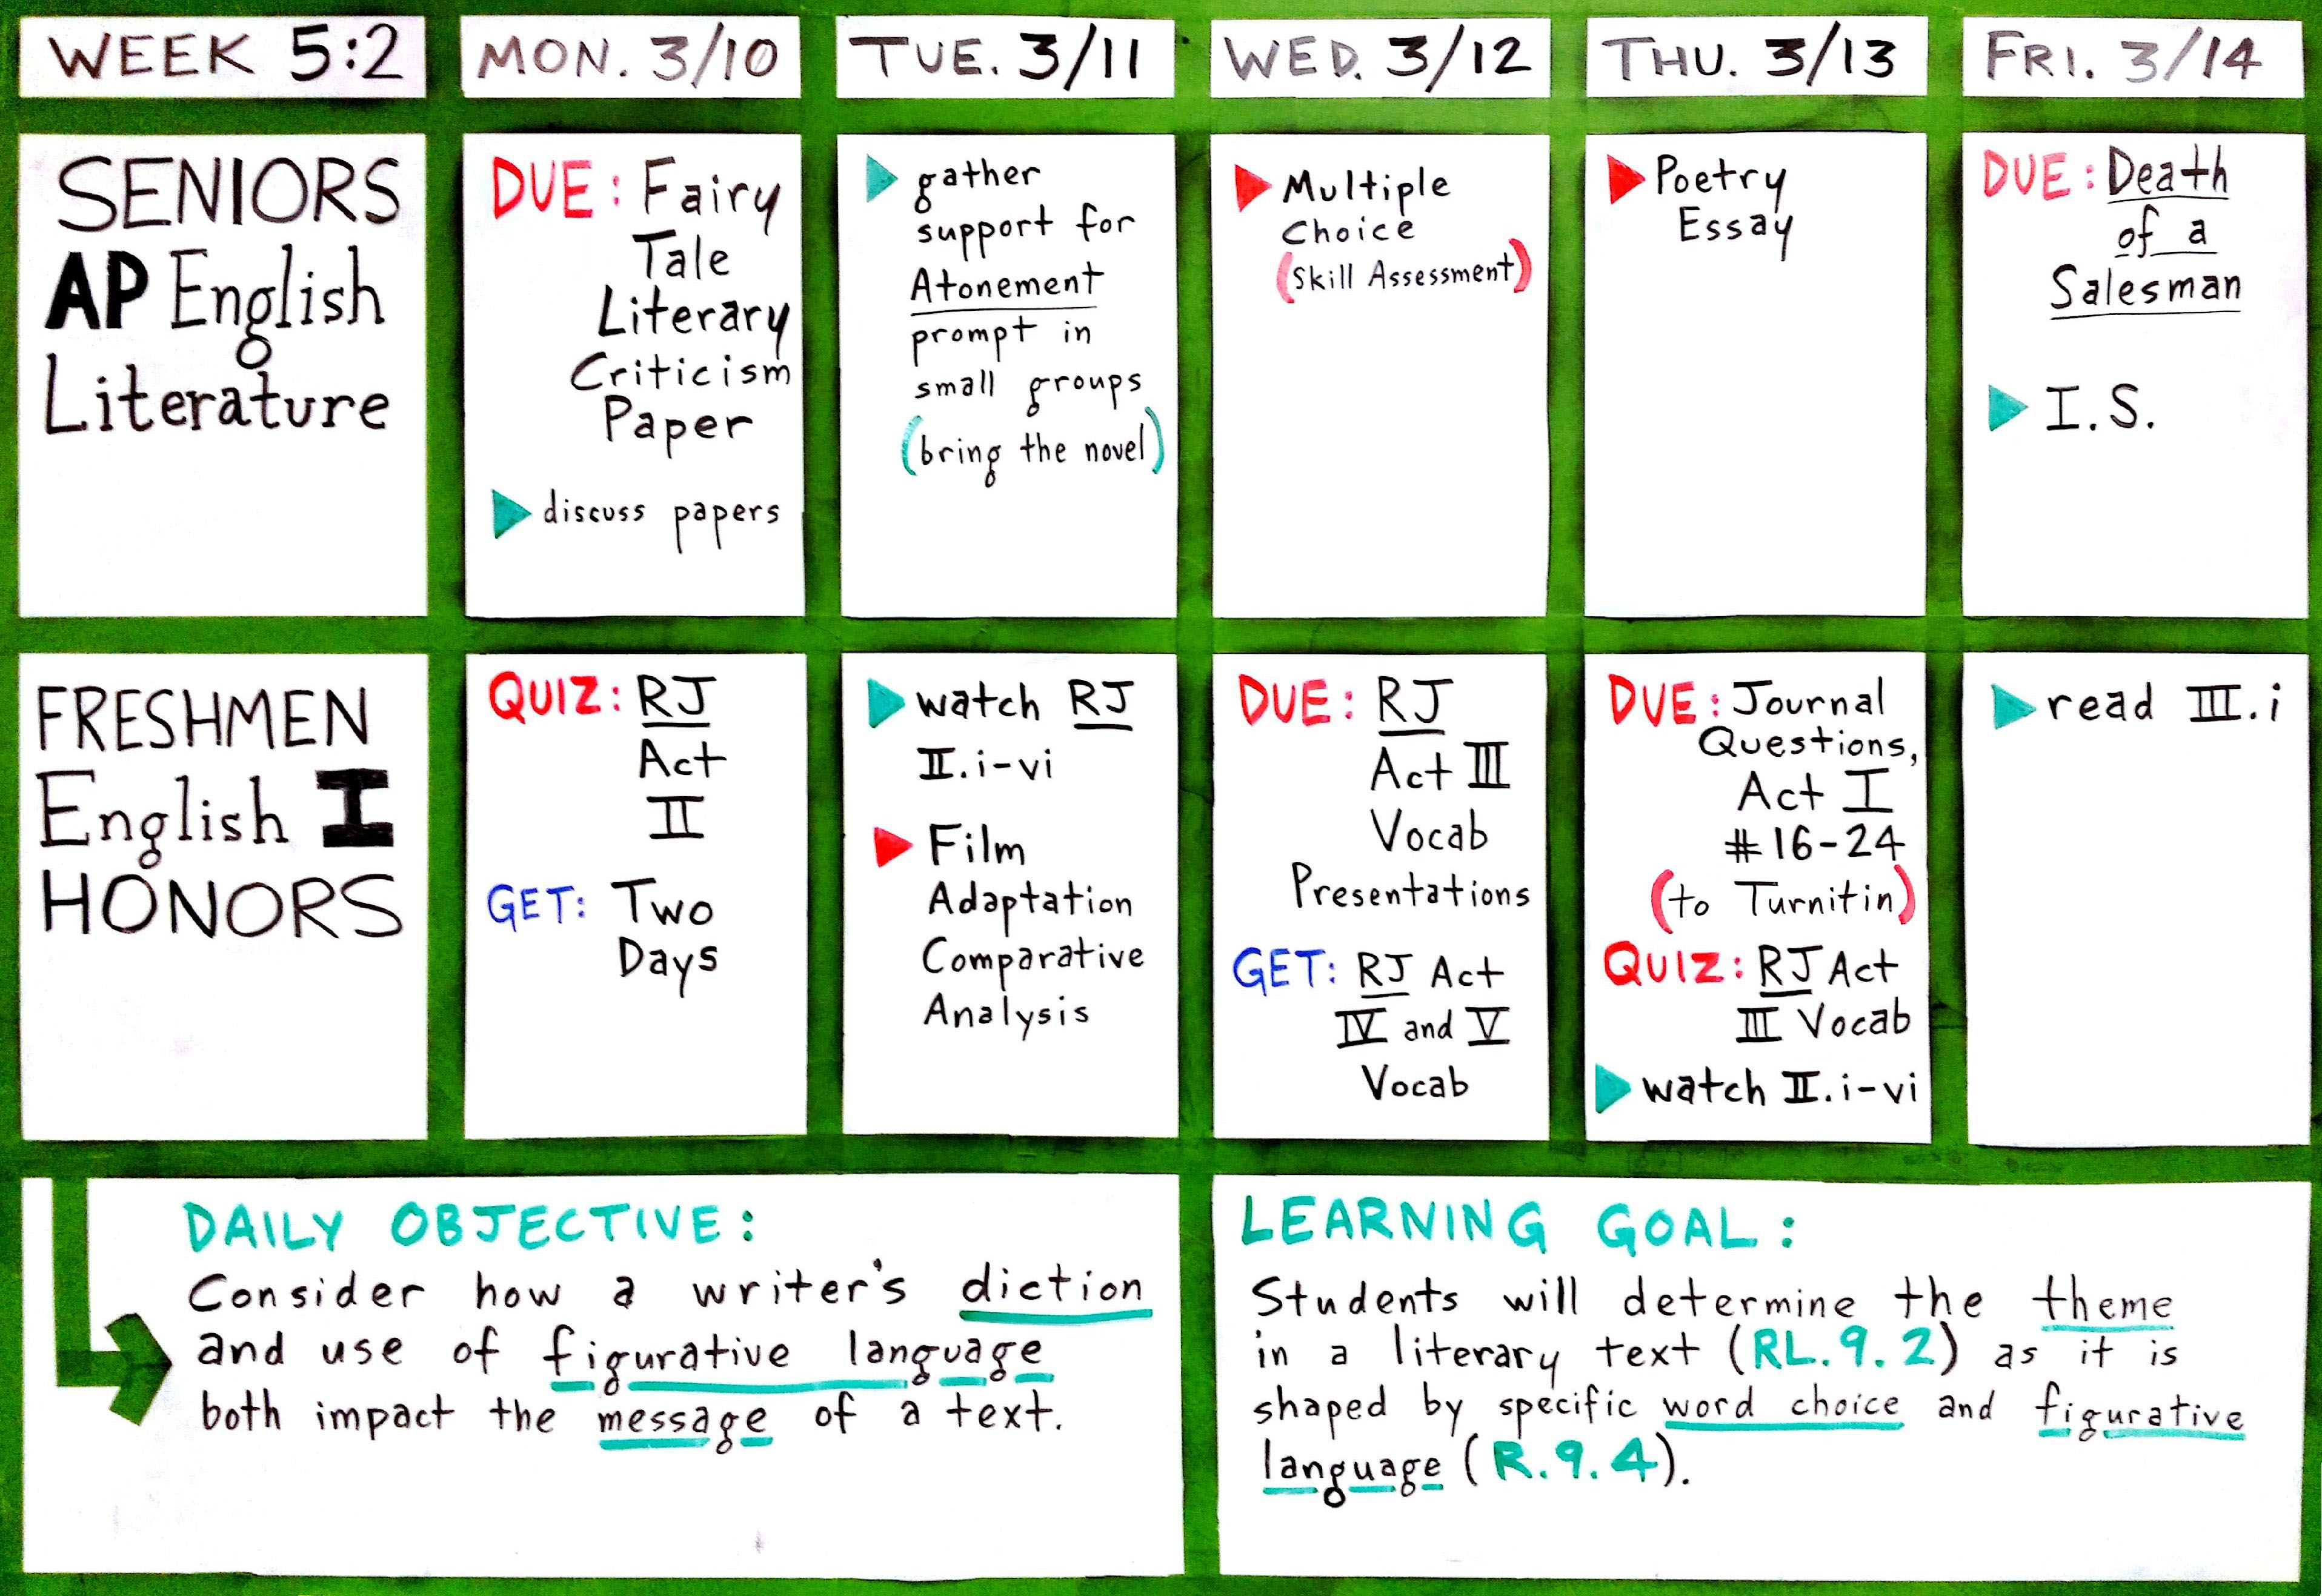 WEEK 5:2
MON. 3/10
TUE. 3/11
WED. 3/12
THU. 3/13
FRI. 3/14
SENIORS
AP English
Literature
DUE: Fairy
Tale
Literary
Criticism
Paper
discuss papers
gather
support for
Atonement
prompt in
small groups
(bring the novel)
Multiple
Choice
(Skill Assessment)
Poetry
Essay
DUE: Death
of a
Salesman
I.S.
FRESHMEN
English I
HONORS
QUIZ: RJ
Act
II
GET: Two
Days
watch RJ
II.i-vi
Film
Adaptation
Comparative
Analysis
DUE: RJ
Act III
Vocab
Presentations
GET: RJ Act
IV and V
Vocab
DUE: Journal
Questions,
Act I
#16-24
(to Turnitin)
QUIZ: RJ Act
III Vocab
watch II.i-vi
read III.i
DAILY OBJECTIVE:
Consider how a writer's diction
and use of figurative language
both impact the message of a text.
LEARNING GOAL:
Students will determine the theme
in a literary text (RL.9.2) as it is
shaped by specific word choice and figurative
language (R.9.4).